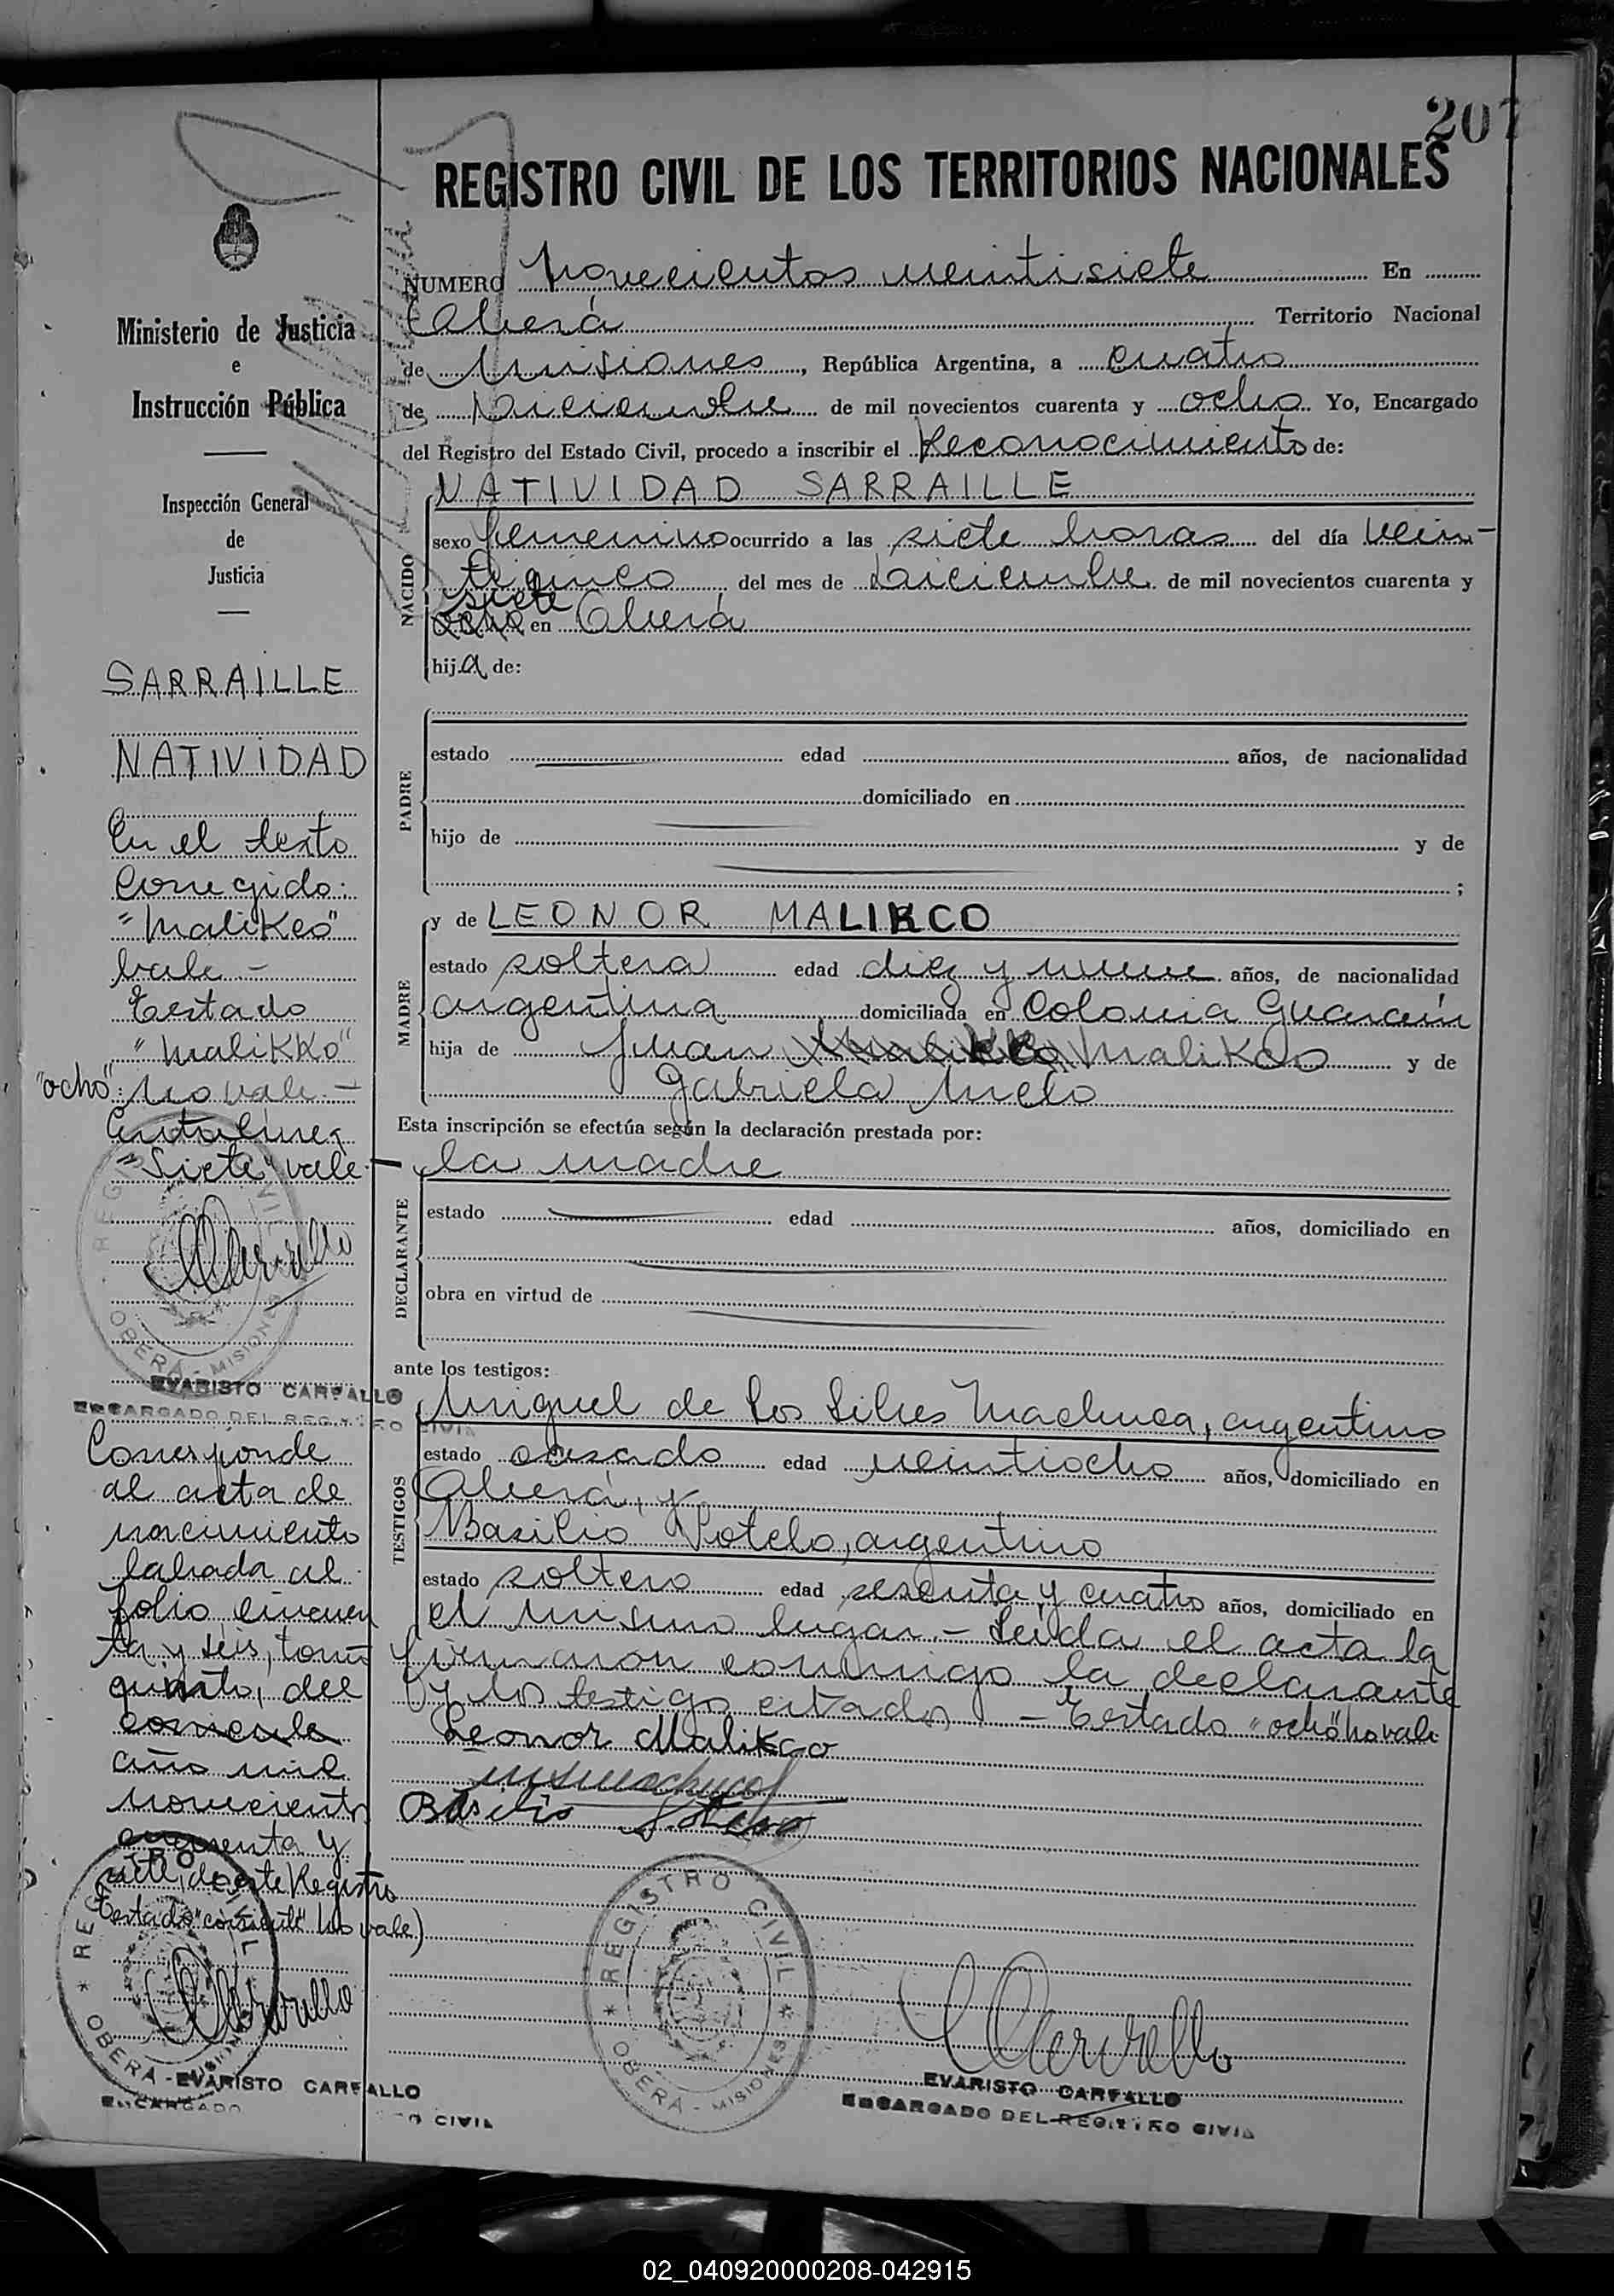 207
REGISTRO CIVIL DE LOS TERRITORIOS NACIONALES
Ministerio de Justicia
e
Instrucción Pública
Inspección General
de
Justicia
SARRAILLE
NATIVIDAD
En el texto
Corregido:
"Malikco"
vale -
Testado
"Malikko"
"ocho": No vale. -
Entrelínea
"Siete" vale -
REGISTRO CIVIL
OBERA - MISIONES
EVARISTO CARFALLO
ENCARGADO DEL REGISTRO CIVIL
Corresponde
al acta de
nacimiento
labrada al
folio cincuen
ta y seis, tomo
quinto, del
corriente
año mil
novecientos
cuarenta y
siete, de este Registro
Testado "corriente" No vale)
REGISTRO CIVIL
OBERA - MISIONES
EVARISTO CARFALLO
ENCARGADO
CIVIL
NUMERO Novecientos veintisiete En
Oberá Territorio Nacional
de Misiones, República Argentina, a cuatro
de Diciembre de mil novecientos cuarenta y ocho Yo, Encargado
del Registro del Estado Civil, procedo a inscribir el Reconocimiento de:
NACIDO
NATIVIDAD SARRAILLE
sexo femenino ocurrido a las siete horas del día vein-
ticinco del mes de diciembre de mil novecientos cuarenta y
siete
ocho en Oberá
hija de:
PADRE
estado edad años, de nacionalidad
domiciliado en
hijo de y de
;
MADRE
y de LEONOR MALIKCO
estado soltera edad diez y nueve años, de nacionalidad
argentina domiciliada en Colonia Guaraní
hija de Juan Malikko Malikco y de
Gabriela Melo
Esta inscripción se efectúa según la declaración prestada por:
DECLARANTE
la madre
estado edad años, domiciliado en
obra en virtud de
ante los testigos:
TESTIGOS
Miguel de los Machuca, argentino
estado casado edad veintiocho años, domiciliado en
Oberá, y
Basilio Sotelo, argentino
estado soltero edad sesenta y cuatro años, domiciliado en
el mismo lugar. - Leída el acta la
firmaron conmigo la declarante
y los testigos citados - Testado "ocho" No vale
Leonor Malikco
Basilio Sotelo
REGISTRO CIVIL
OBERA - MISIONES
EVARISTO CARFALLO
ENCARGADO DEL REGISTRO CIVIL
02_040920000208-042915